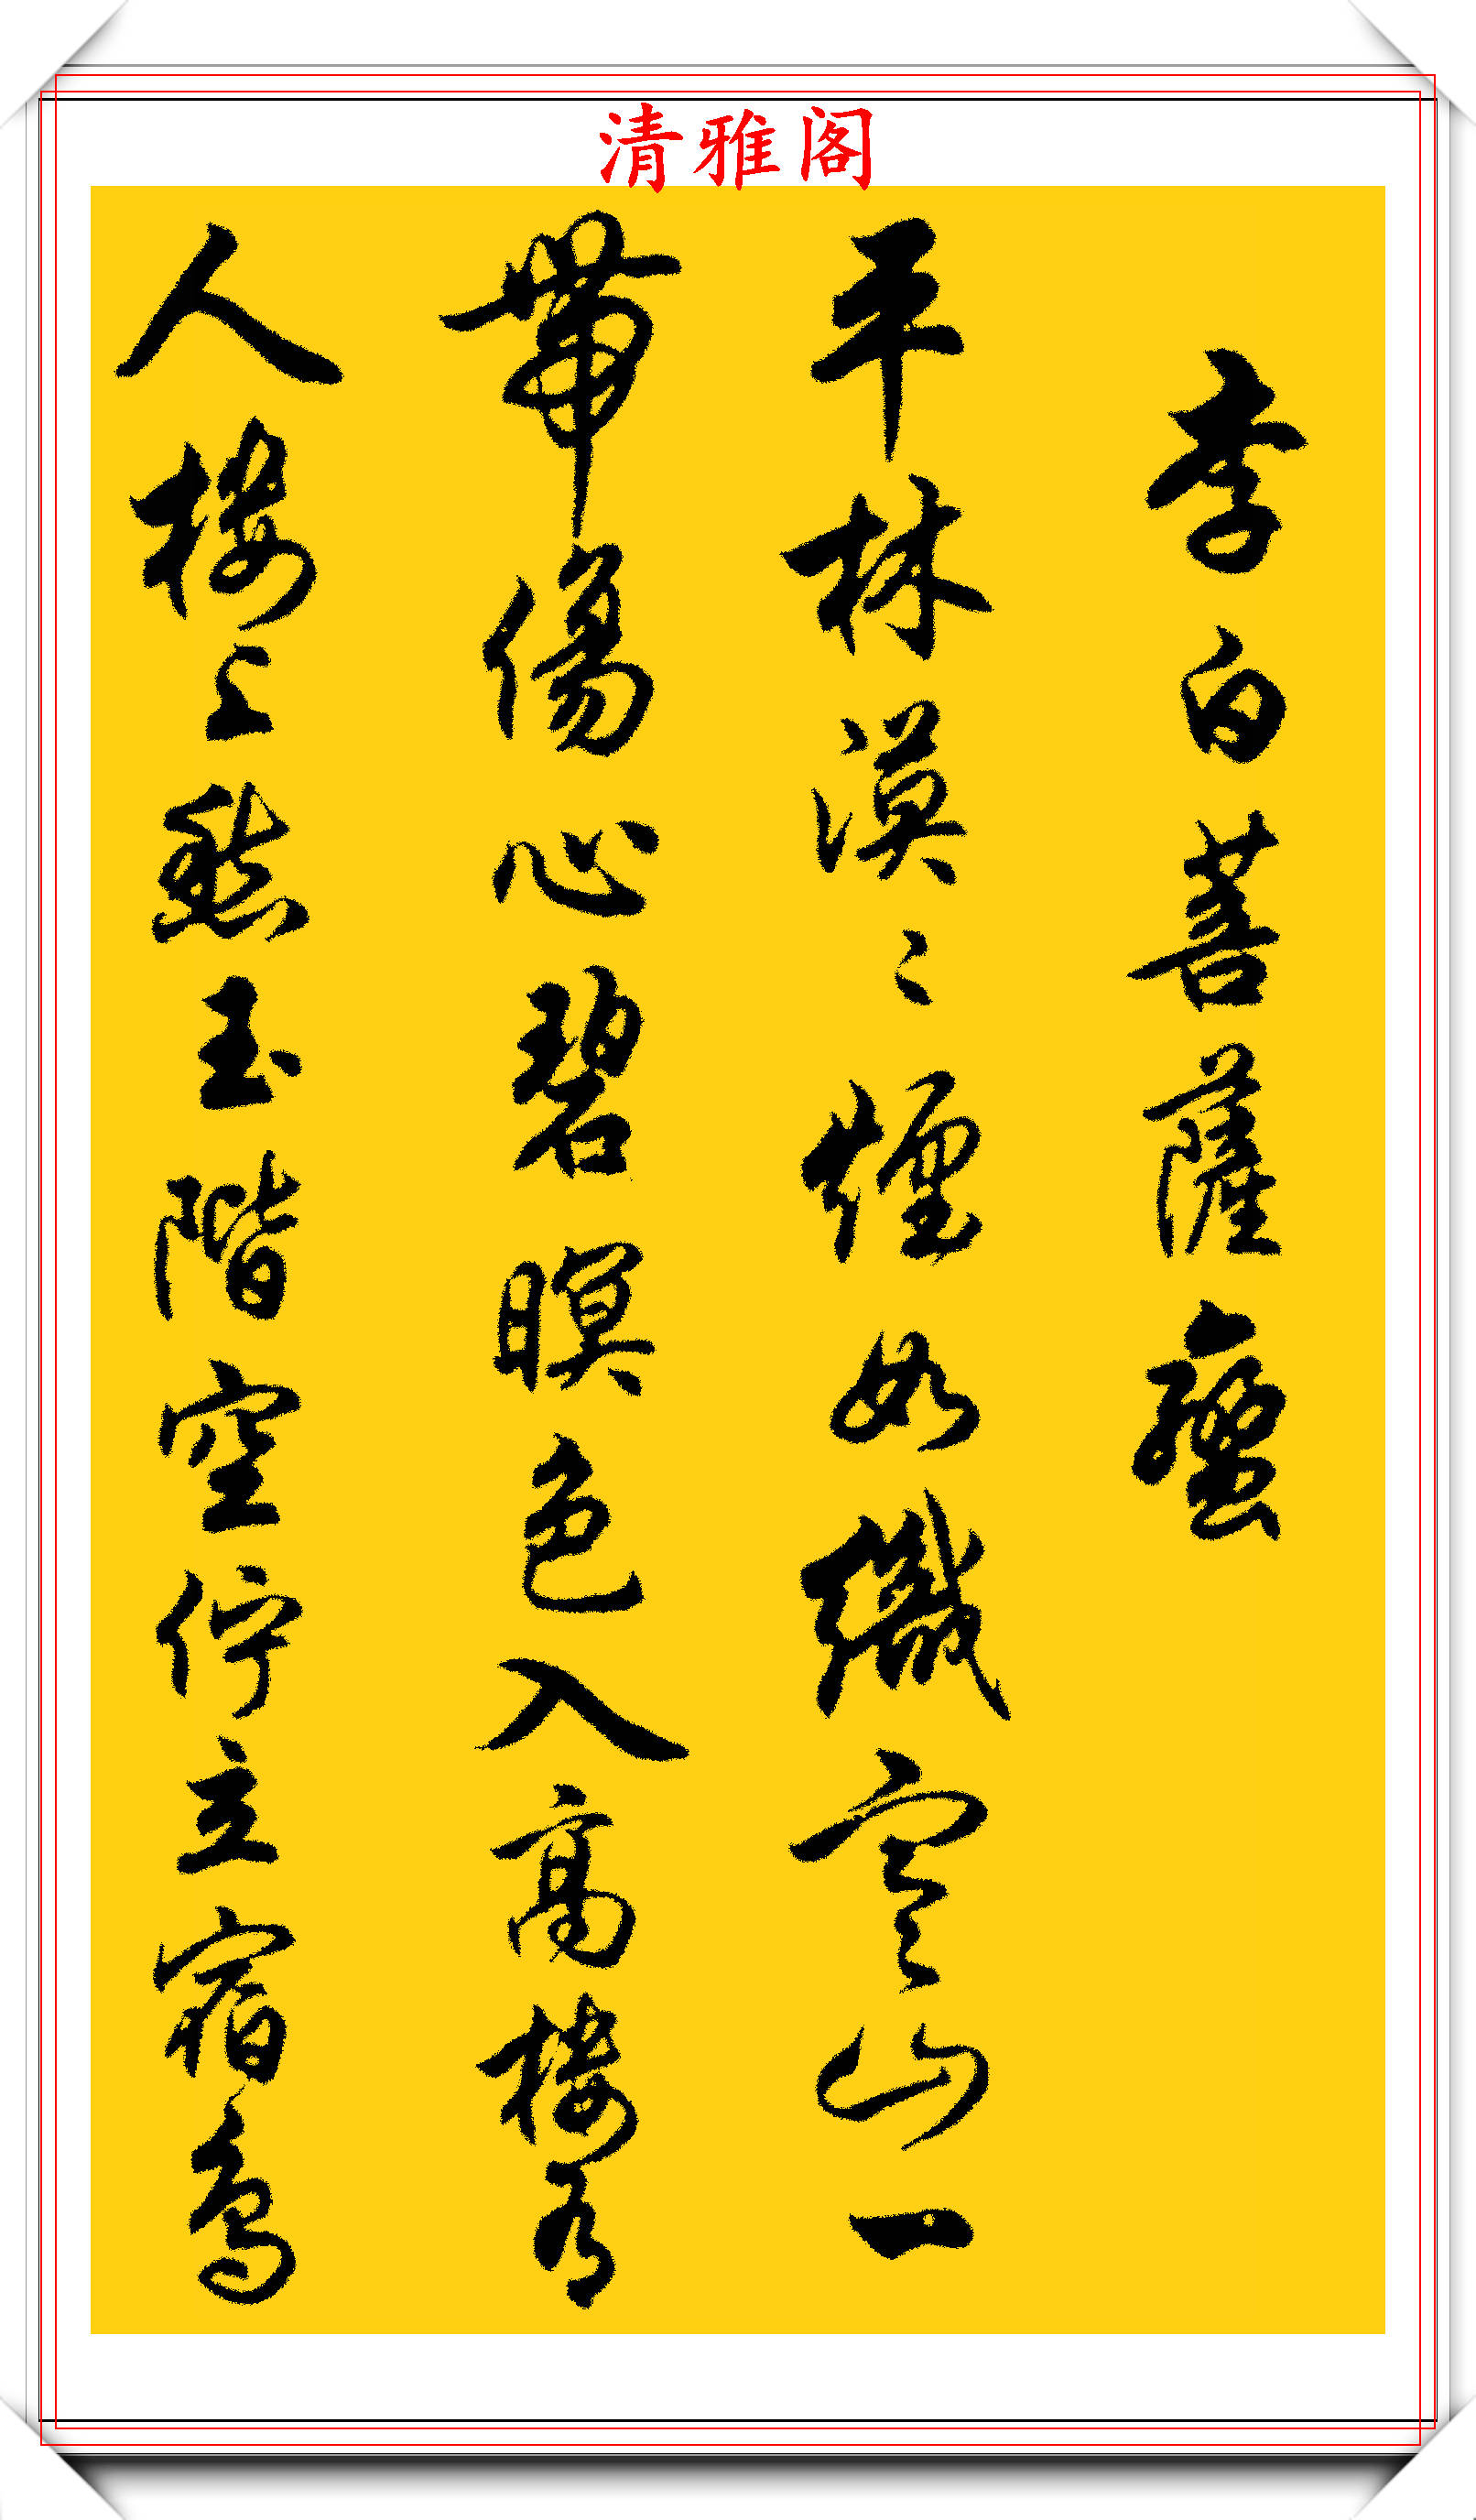 清雅阁
李白菩薩蠻
平林漠〻煙如織寒山一
帶傷心碧暝色入高樓有
人樓上愁玉階空佇立宿鳥